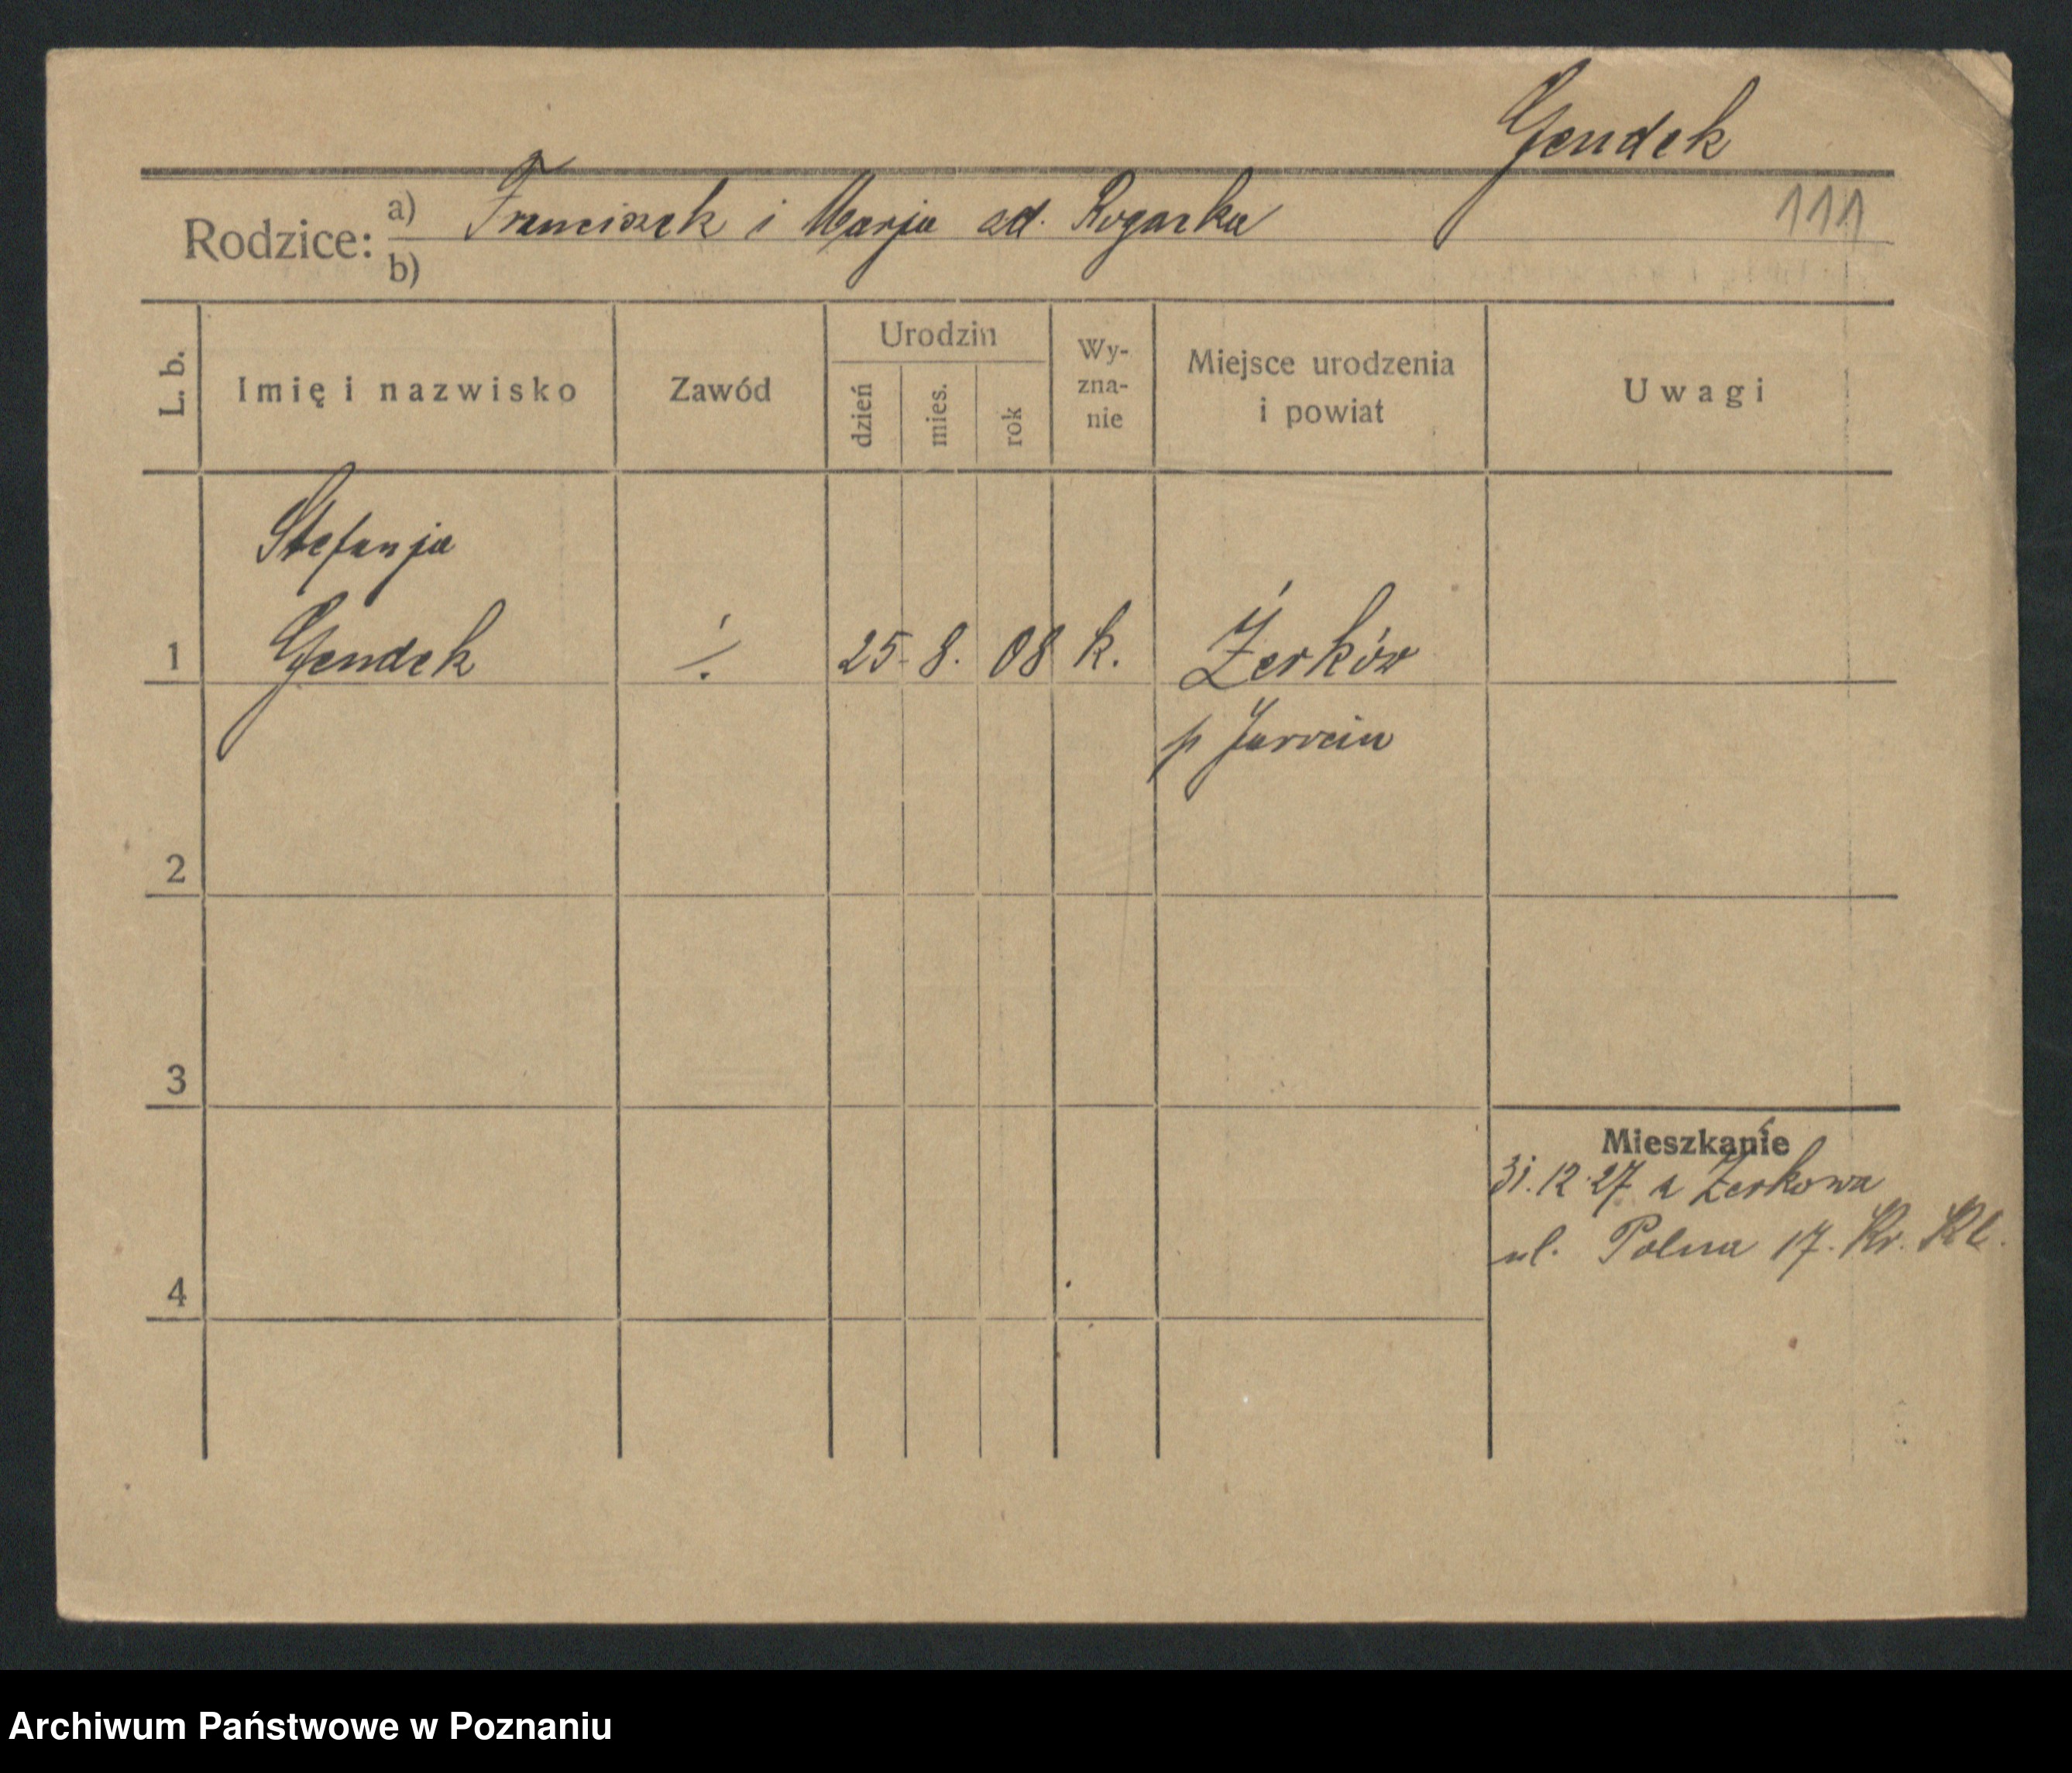 Gendek
111
Rodzice: a) Franciszek i Marja zd. Rogacka
b)
L. b.
Imię i nazwisko
Zawód
Urodzin
dzień
mies.
rok
Wy-
zna-
nie
Miejsce urodzenia
i powiat
Uwagi
Stefanja
1 Gendek ./. 25. 8. 08 k. Żerków
p Jarocin
2
3
4
Mieszkanie
31.12.27 z Żerkowa
ul. Polna 17.
Archiwum Państwowe w Poznaniu